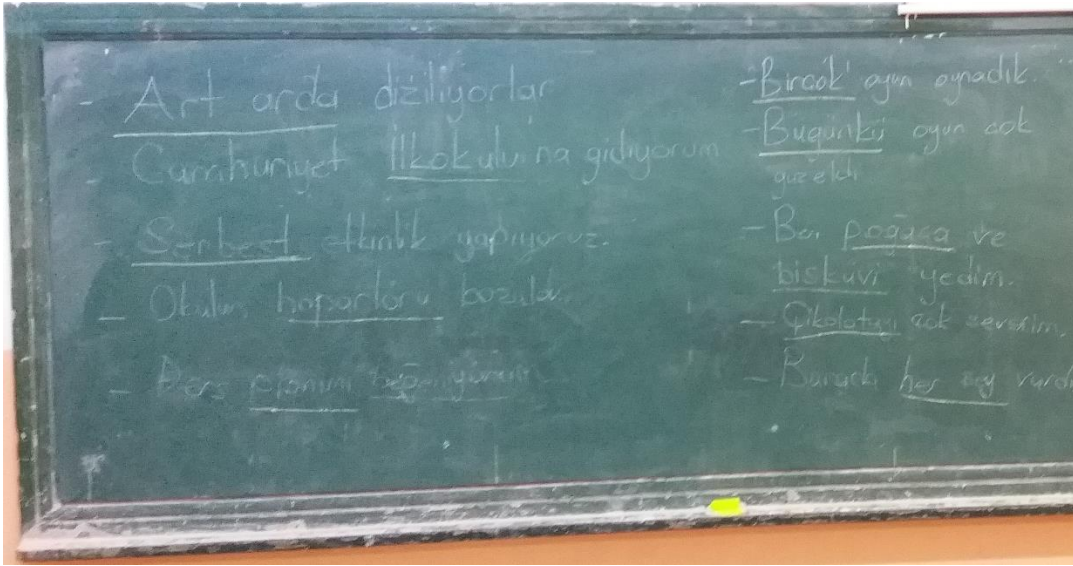 - Art arda diziliyorlar
- Cumhuriyet İlkokulu'na gidiyorum
- Serbest etkinlik yapıyoruz.
- Okulun hoparlörü bozuldu.
- Ders planını beğeniyorum
- Birçok oyun oynadık.
- Bugünkü oyun çok
güzeldi
- Ben poğaça ve
bisküvi yedim.
- Çikolatayı çok severim.
- Burada her şey vardı